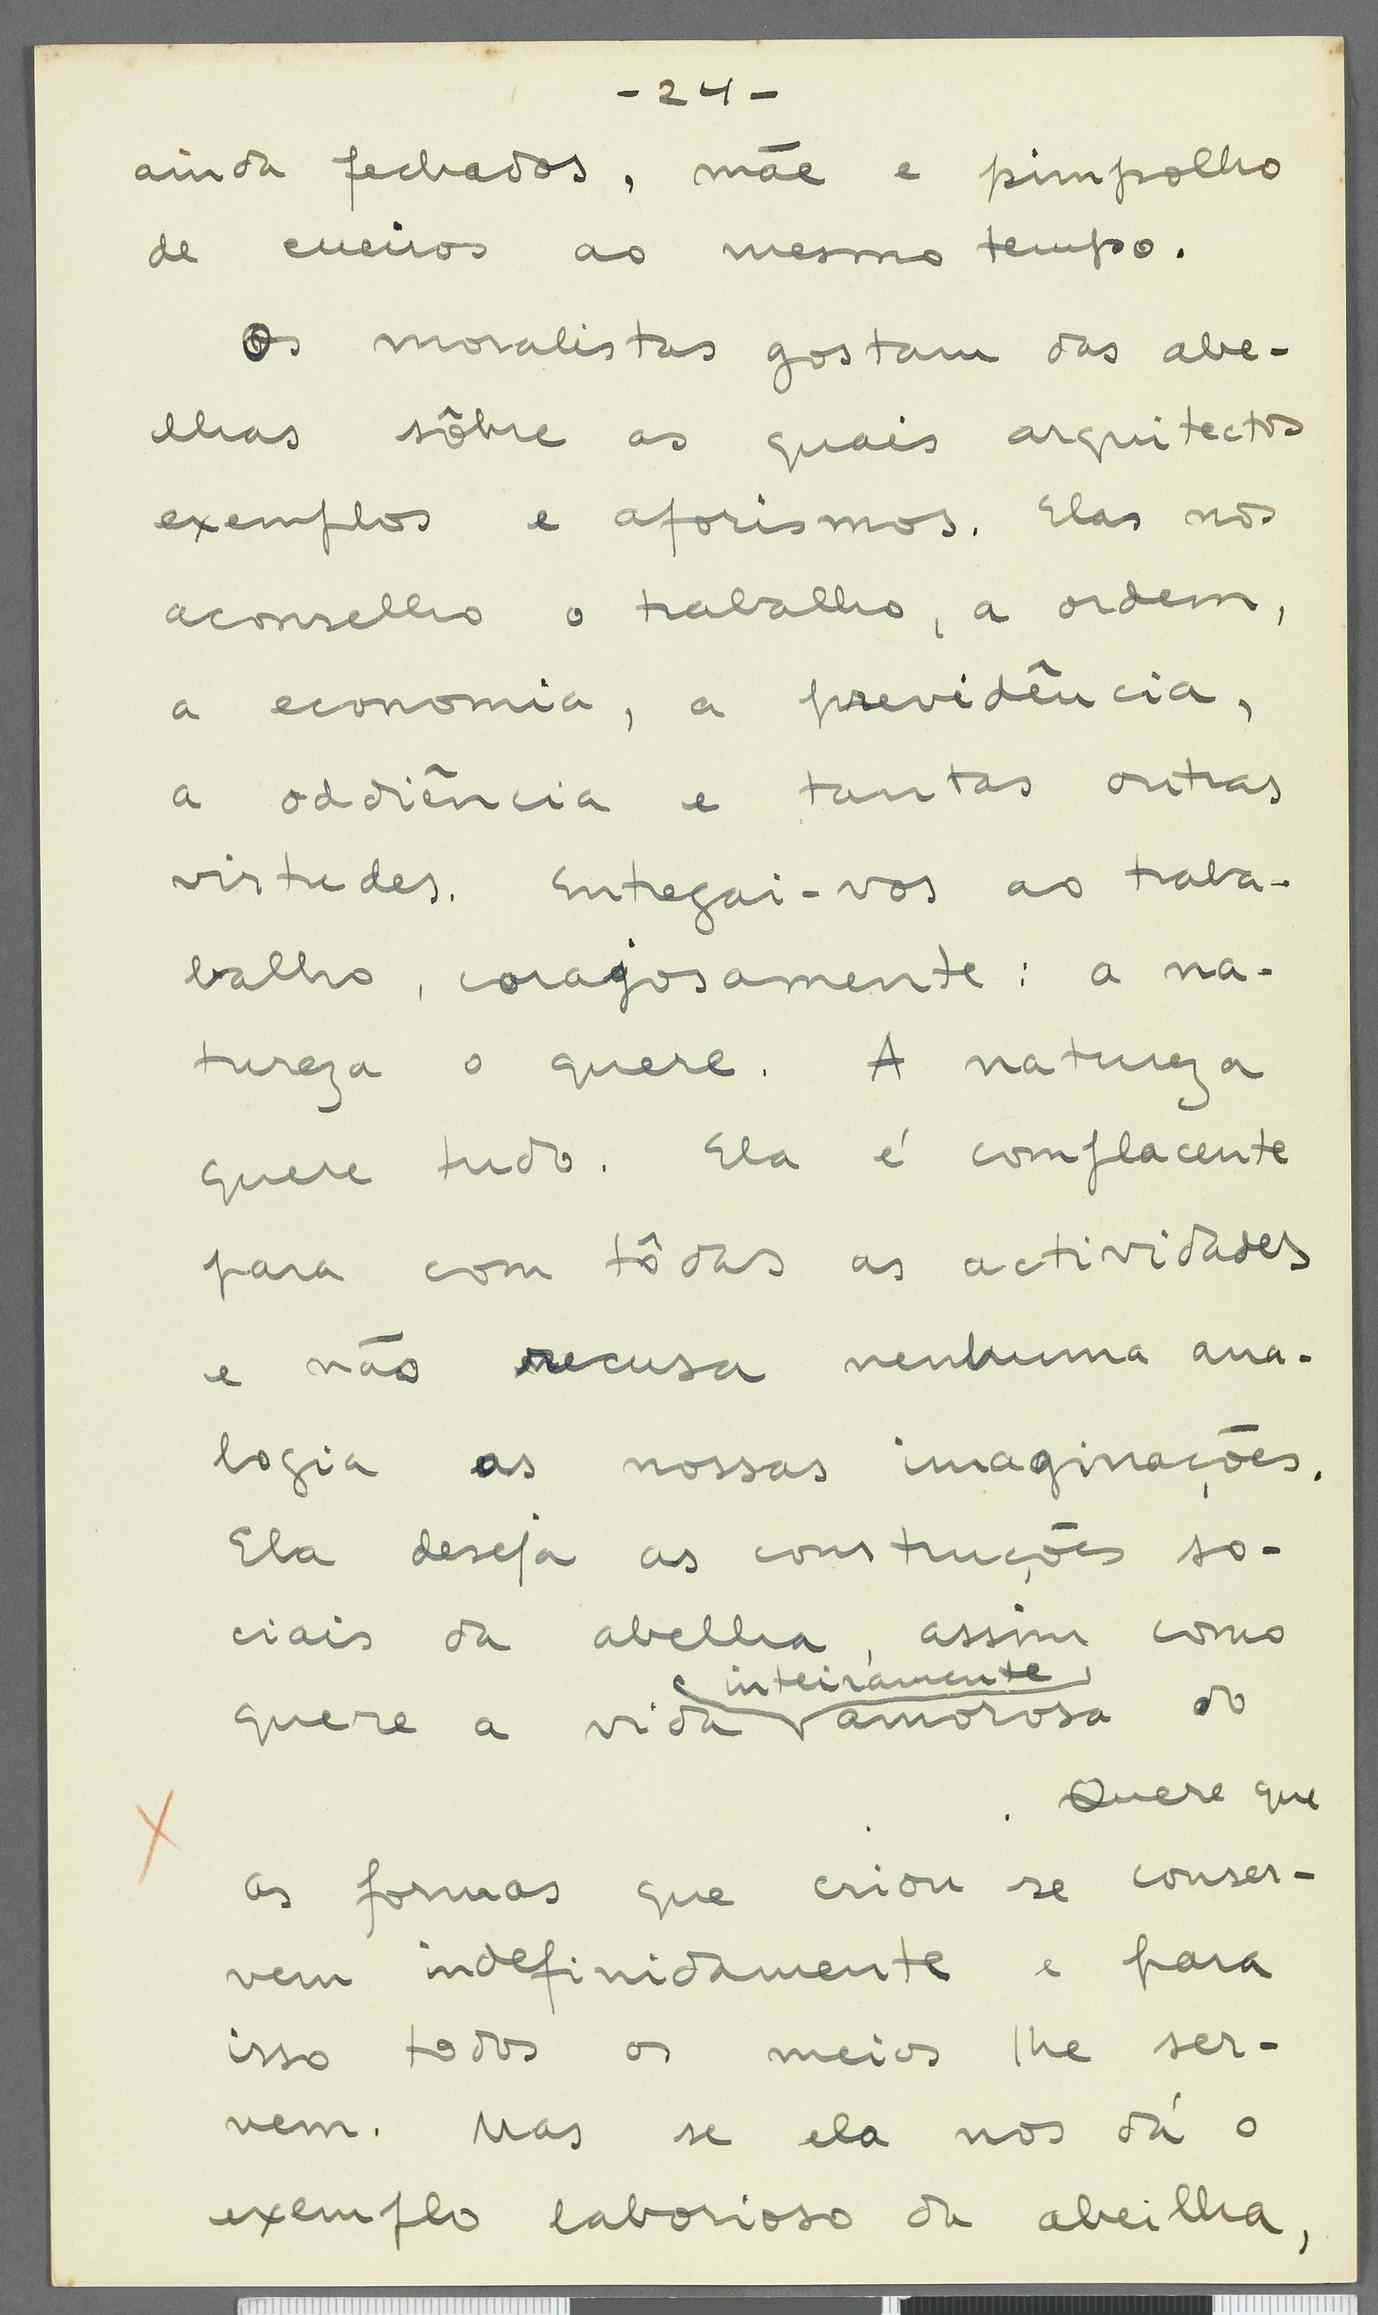 - 24 -
ainda fechados, mãe e pimpolho
de cueiros ao mesmo tempo.
Os moralistas gostam das abe-
lhas sôbre as quais arquitectos
exemplos e aforismos. Elas nos
aconselho o trabalho, a ordem,
a economia, a previdência,
a oddiência e tantas outras
virtudes. Entregai-vos ao traba-
balho, corajosamente: a na-
tureza o quere. A natureza
quere tudo. Ela é complacente
para com tôdas as actividades
e não recusa nenhuma ana-
logia as nossas imaginações.
Ela deseja as construções so-
ciais da abelha, assim como
inteiramente
quere a vida amorosa do
. Quere que
X
as formas que criou se conser-
vem indefinidamente e para
isso todos os meios lhe ser-
vem. Mas se ela nos dá o
exemplo laborioso da abeilha,